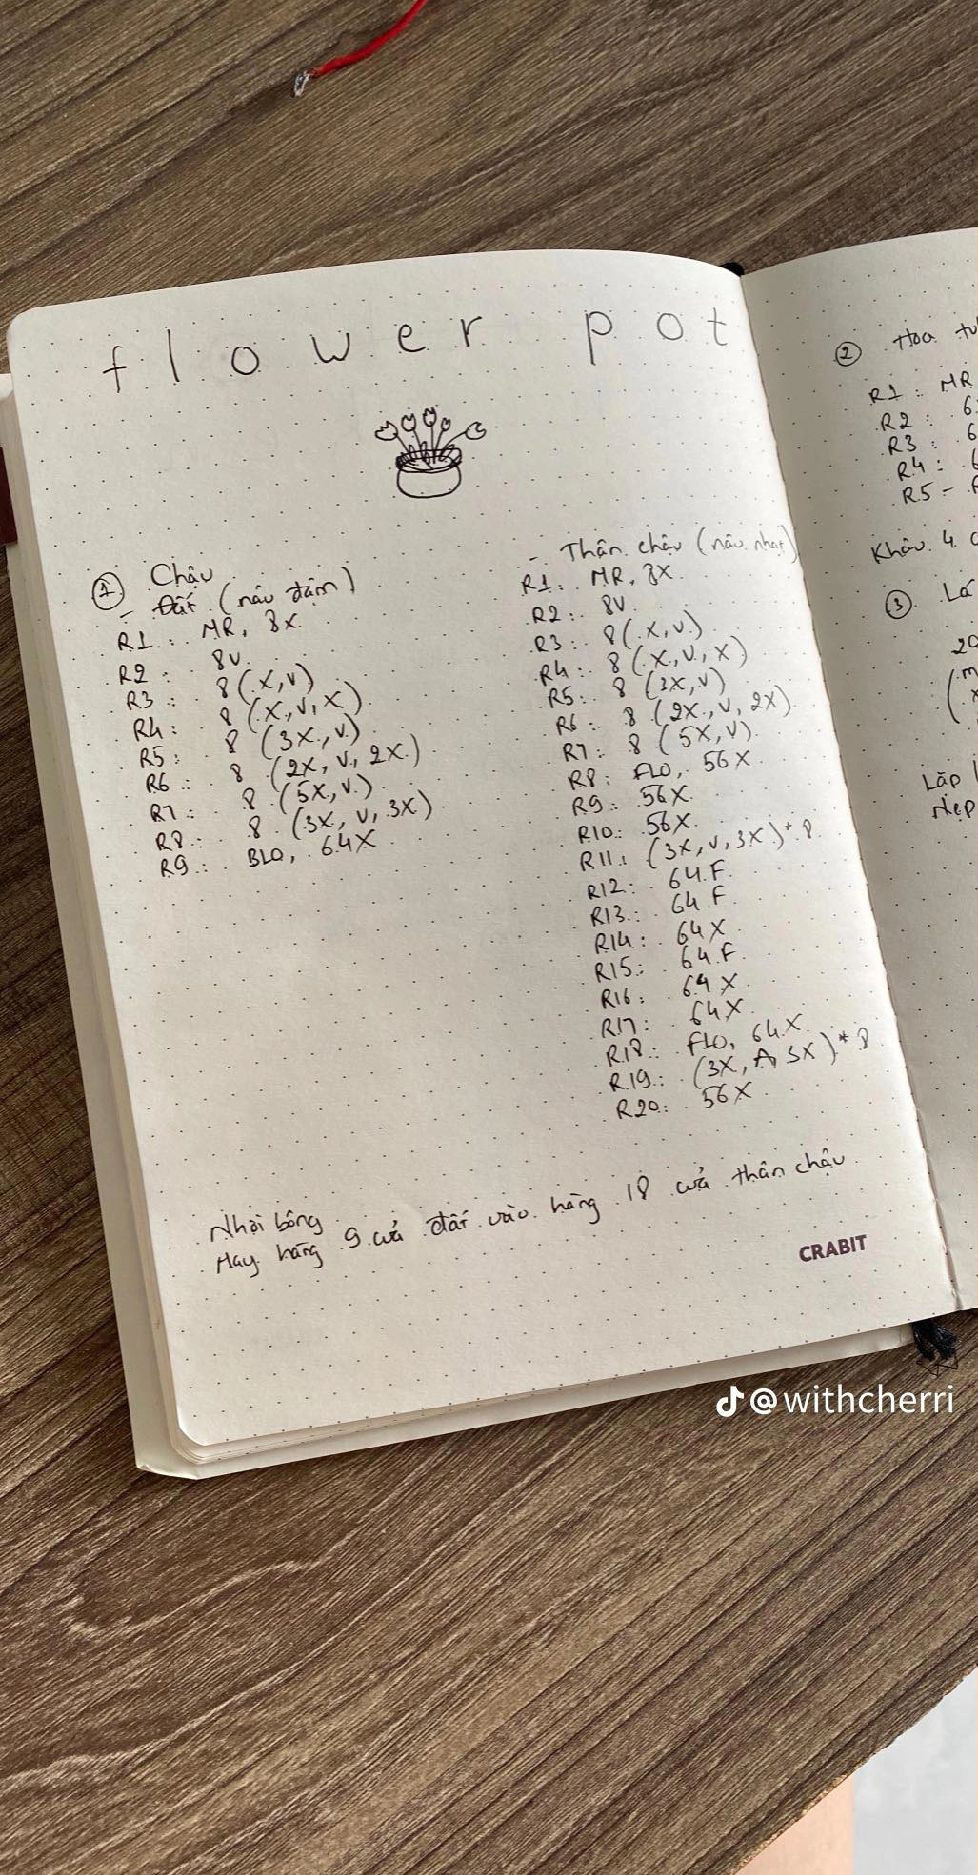 flower pot
① Chậu
- Đất (nâu đậm)
R1: MR, 8X
R2: 8V
R3: 8(X,V)
R4: 8(X,V,X)
R5: 8(3X,V)
R6: 8(2X,V,2X)
R7: 8(5X,V)
R8: 8(3X,V,3X)
R9: BLO, 64X
- Thân chậu (nâu nhạt)
R1: MR, 8X
R2: 8V
R3: 8(X,V)
R4: 8(X,V,X)
R5: 8(3X,V)
R6: 8(2X,V,2X)
R7: 8(5X,V)
R8: FLO, 56X
R9: 56X
R10: 56X
R11: (3X,V,3X)*8
R12: 64F
R13: 64F
R14: 64X
R15: 64F
R16: 64X
R17: 64X
R18: FLO, 64X
R19: (3X,A,3X)*8
R20: 56X
Nhồi bông
May hàng 9 của đất vào hàng 18 của thân chậu
CRABIT
② Hoa tu
R1: MR
R2: 6
R3: 6
R4: 6
R5 -
Khâu 4
③ Lá
20
Lắp
@withcherri